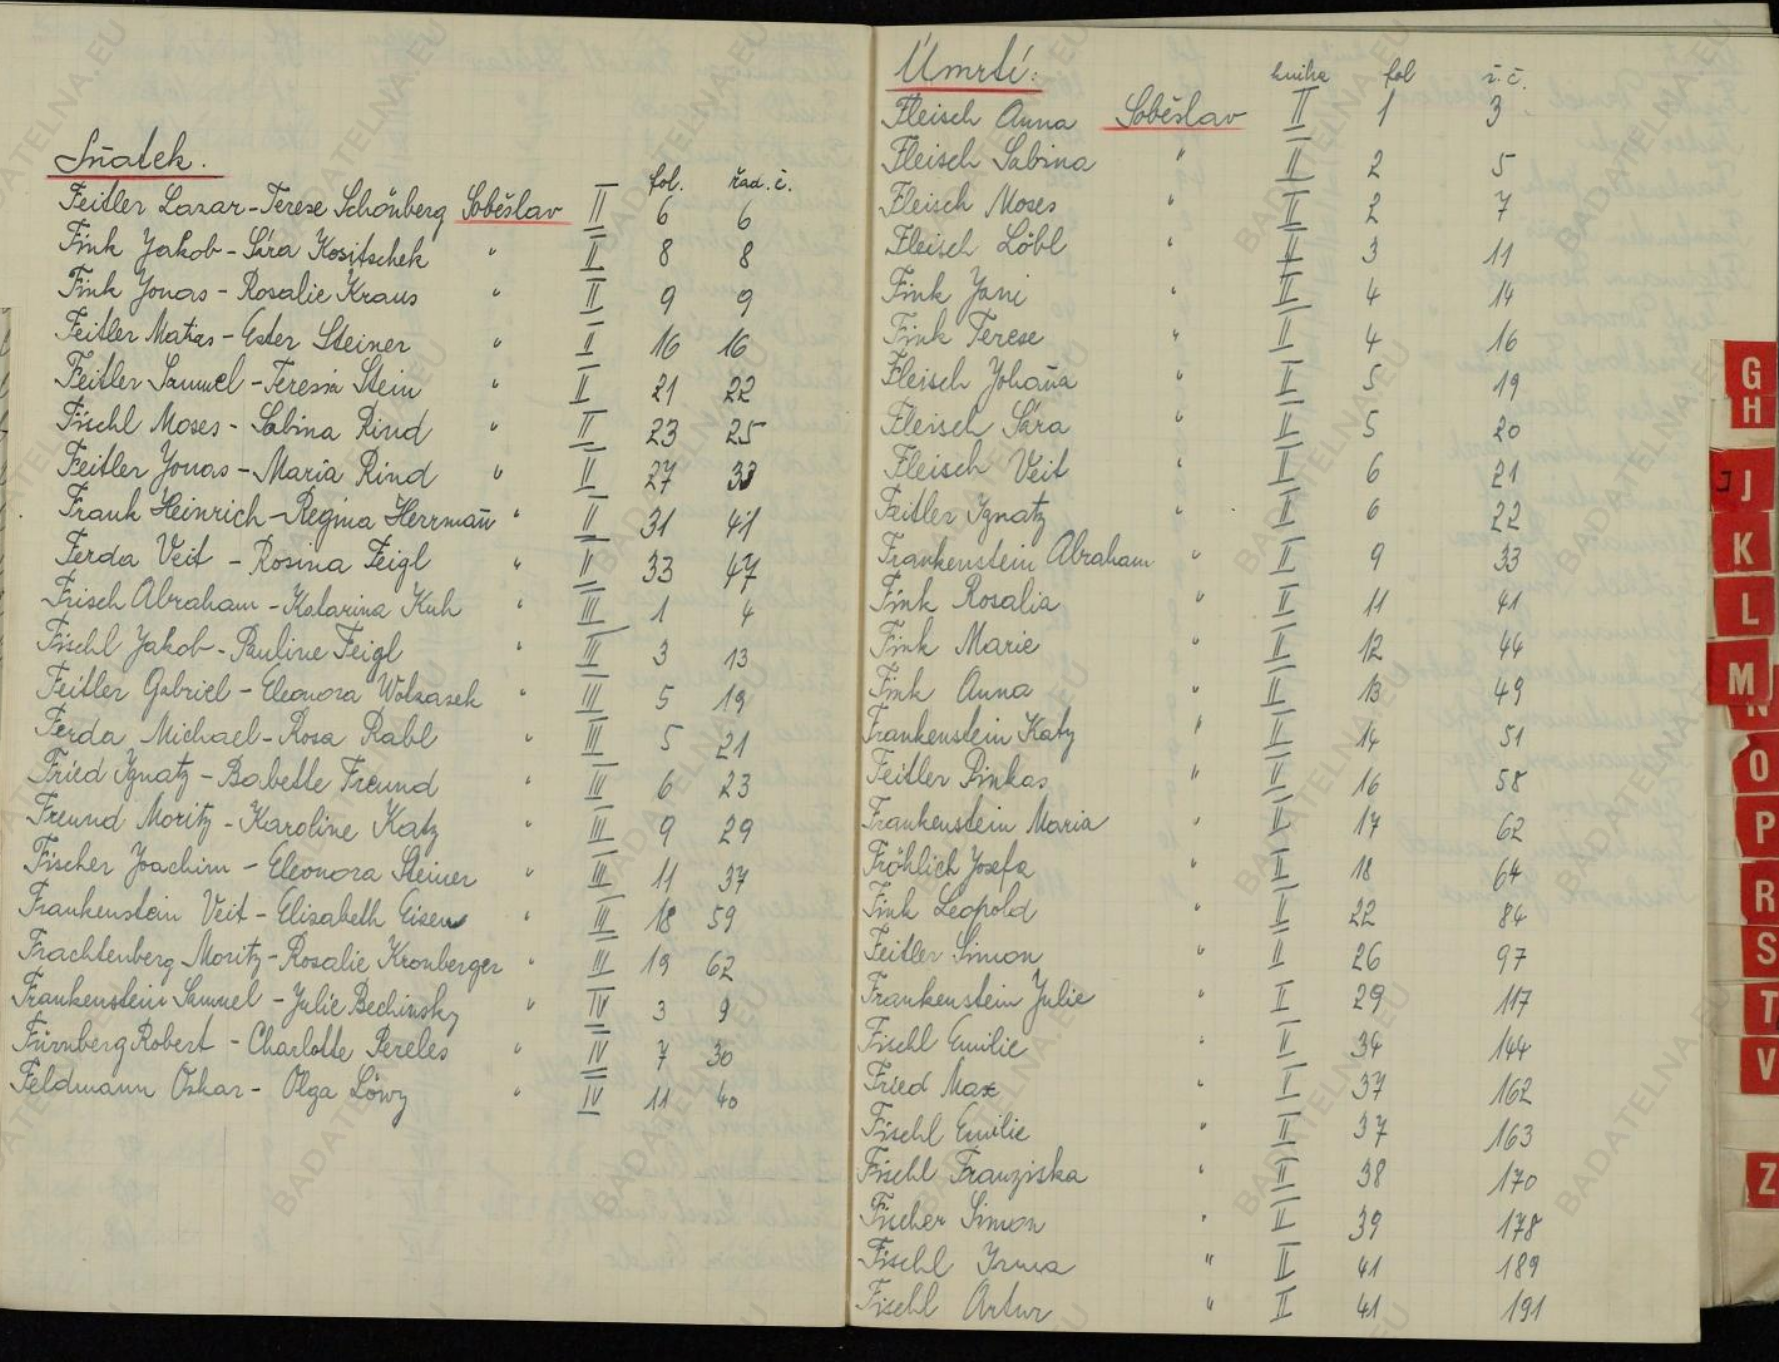 Sňatek.
fol. řad. č.
Feitler Lazar - Terese Schönberg Soběslav II 6 6
Fink Jakob - Sára Kositschek " II 8 8
Fink Jonas - Rosalie Kraus " II 9 9
Feitler Matias - Ester Steiner " II 16 16
Feitler Samuel - Teresia Stein " II 21 22
Fischl Moses - Sabina Rind " II 23 25
Feitler Jonas - Maria Rind " II 27 33
Frank Heinrich - Regina Herrman̄ " II 31 41
Ferda Veit - Rosina Feigl " II 33 47
Frisch Abraham - Katarina Kuh " III 1 4
Fischl Jakob - Pauline Feigl " III 3 13
Feitler Gabriel - Eleonora Wolzasek " III 5 19
Ferda Michael - Rosa Rabl " III 5 21
Fried Ignatz - Babette Freund " III 6 23
Freund Moritz - Karoline Katz " III 9 29
Fischer Joachim - Eleonora Steiner " III 11 37
Frankenstein Veit - Elisabeth Eisen " III 18 59
Frachtenberg Moritz - Rosalie Kronberger " III 19 62
Frankenstein Samuel - Julie Bechinsky " IV 3 9
Fürnberg Robert - Charlotte Pereles " IV 7 30
Feldmann Oskar - Olga Löwy " IV 11 40
Úmrtí: kniha fol ř.č.
Fleisch Anna Soběslav II 1 3
Fleisch Sabina " II 2 5
Fleisch Moses " II 2 7
Fleisch Löbl " II 3 11
Fink Jani " II 4 14
Fink Terese " II 4 16
Fleisch Johan̄a " II 5 19
Fleisch Sára " II 5 20
Fleisch Veit " II 6 21
Feitler Ignatz " II 6 22
Frankenstein Abraham " II 9 33
Fink Rosalia " II 11 41
Fink Marie " II 12 44
Fink Anna " II 13 49
Frankenstein Katy " II 14 51
Feitler Pinkas " II 16 58
Frankenstein Maria " II 17 62
Fröhlich Josefa " II 18 64
Fink Leopold " II 22 84
Feitler Simon " II 26 97
Frankenstein Julie " II 29 117
Fischl Emilie " II 34 144
Fried Max " II 37 162
Fischl Emilie " II 37 163
Fischl Franziska " II 38 170
Fischer Simon " II 39 178
Fischl Irma " II 41 189
Fischl Artur " II 41 191
G
H
J
K
L
M
N
O
P
R
S
T
V
Z
BADATELNA.EU